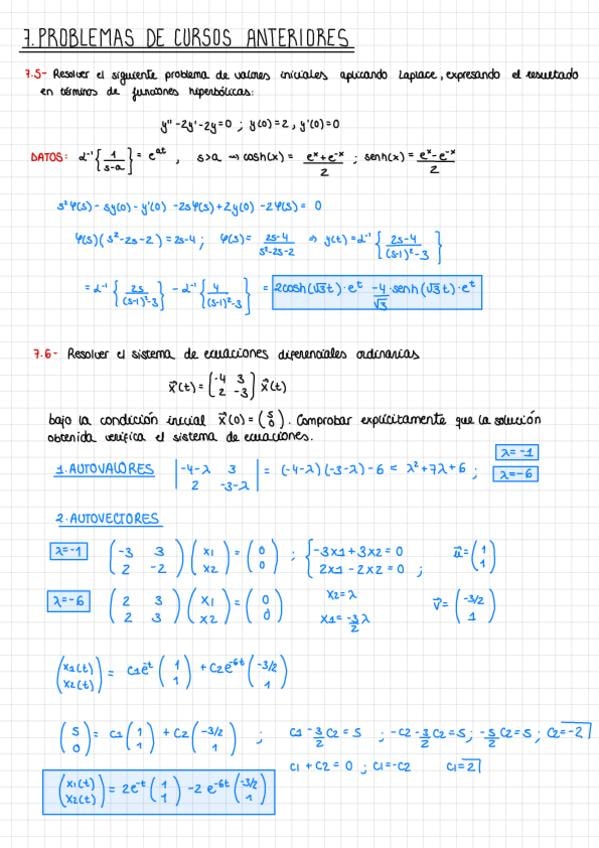 7. PROBLEMAS DE CURSOS ANTERIORES
7.5- Resolver el siguiente problema de valores iniciales aplicando Laplace, expresando el resultado
en términos de funciones hiperbólicas:
y'' - 2y' - 2y = 0 ; y(0) = 2, y'(0) = 0
DATOS: ℒ⁻¹{1/(s-a)} = e^{at}, s>a → cosh(x) = (e^x + e^{-x})/2 ; senh(x) = (e^x - e^{-x})/2
s²φ(s) - sy(0) - y'(0) - 2sφ(s) + 2y(0) - 2φ(s) = 0
φ(s)(s² - 2s - 2) = 2s - 4 ; φ(s) = (2s-4)/(s²-2s-2) ⇒ y(t) = ℒ⁻¹{(2s-4)/((s-1)²-3)}
= ℒ⁻¹{2s/((s-1)²-3)} - ℒ⁻¹{4/((s-1)²-3)} = 2cosh(√3t)·e^t - 4/√3·senh(√3t)·e^t
7.6- Resolver el sistema de ecuaciones diferenciales ordinarias
ẋ(t) = (-4 3 / 2 -3) x⃗(t)
bajo la condición inicial x⃗(0) = (5 / 0). Comprobar explícitamente que la solución
obtenida verifica el sistema de ecuaciones.
1. AUTOVALORES |-4-λ 3 / 2 -3-λ| = (-4-λ)(-3-λ) - 6 = λ² + 7λ + 6 ; λ = -1 λ = -6
2. AUTOVECTORES
λ = -1 (-3 3 / 2 -2)(x1 / x2) = (0 / 0) ; {-3x1 + 3x2 = 0 / 2x1 - 2x2 = 0 ; u⃗ = (1 / 1)
λ = -6 (2 3 / 2 3)(x1 / x2) = (0 / 0) x2 = λ x1 = -3/2 λ v⃗ = (-3/2 / 1)
(x1(t) / x2(t)) = C1e^{-t}(1 / 1) + C2e^{-6t}(-3/2 / 1)
(5 / 0) = C1(1 / 1) + C2(-3/2 / 1) ; C1 - 3/2 C2 = 5 ; -C2 - 3/2 C2 = 5 ; -5/2 C2 = 5 ; C2 = -2
C1 + C2 = 0 ; C1 = -C2 C1 = 2
(x1(t) / x2(t)) = 2e^{-t}(1 / 1) - 2e^{-6t}(-3/2 / 1)